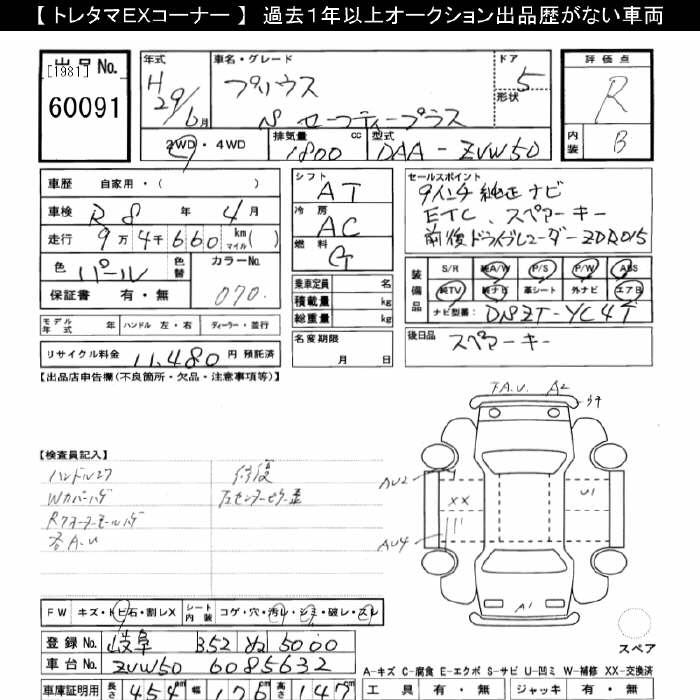 【 トレタマEXコーナー 】 過去1年以上オークション出品歴がない車両
出品No.
[1981]
60091
年式
H29/6月
車名・グレード
プリウス
S セーフティープラス
ドア
5
形状
2WD・4WD
排気量
1800 cc
型式
DAA-ZVW50
評価点
R
内装
B
車歴 自家用・( )
車検 R8年 4月
走行 9万4千660 kmマイル( )
色 パール
色替
カラーNo.
070.
保証書 有・無
モデル年式 年 ハンドル 左・右 ディーラー・並行
リサイクル料金 11,480円 預託済
シフト
AT
冷房
AC
燃料
G
乗車定員 名
積載量 kg
総重量 kg
名変期限
月 日
セールスポイント
9インチ純正ナビ
ETC、スペアーキー
前後ドライブレコーダーZDR015
装備品
S/R 純A/W P/S P/W ABS
純TV 純ナビ 革シート 外ナビ エアB
ナビ型番: DNZT-YC4T
後日品 スペアーキー
【出品店申告欄(不良箇所・欠品・注意事項等)】
【検査員記入】
ハンドルスワ
Wカバーハゲ
Rクォーターモールハゲ
各A.U
修復
左センターピラー歪
F.A.U. A2
AU2
XX
U1
AU4
A1
スペア
FW キズ・トビ石・割レX
シート内装 コゲ・穴・汚レ・シミ・破レ・スレ
登録No. 岐阜 352 ぬ 5000
車台No. ZVW50 6085632
A-キズ C-腐食 E-エクボ S-サビ U-凹ミ W-補修 XX-交換済
車庫証明用 長さ 454cm 幅 176cm 高さ 147cm
工具 有・無 ジャッキ 有・無